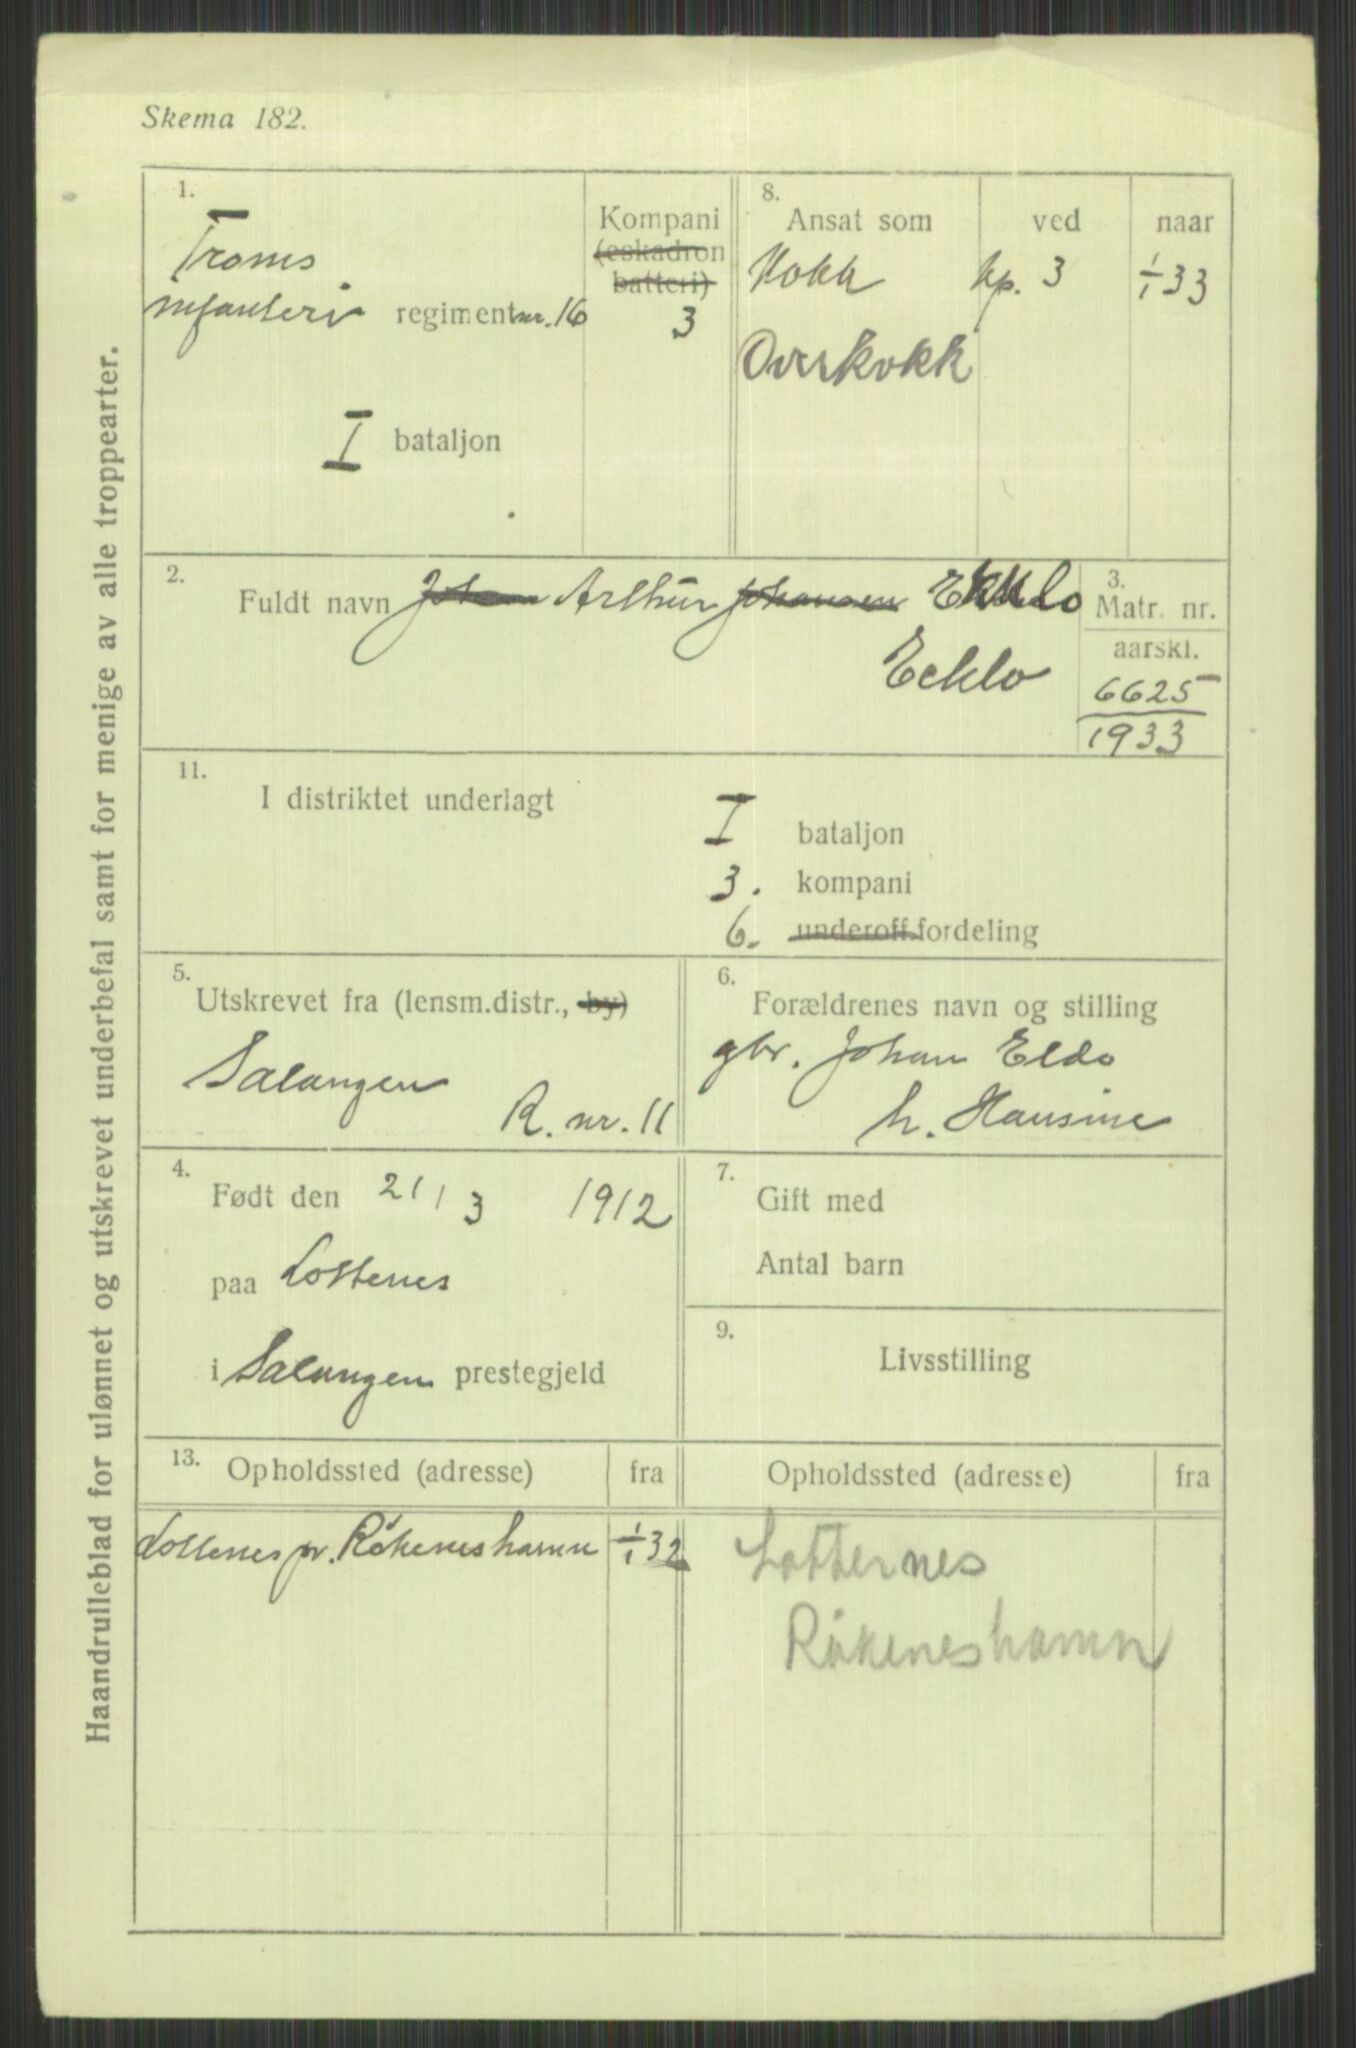 Skema 182.
Haandrulleblad for ulønnet og utskrevet underbefal samt for menige av alle troppearter.
1.
Troms
infanteri regiment nr. 16
I bataljon
Kompani
(eskadron
batteri)
3
8.
Ansat som ved naar
Kokk kp. 3 1/1 33
Overkokk
2.
Fuldt navn Johan Arthur Johansen
Eeklo
3.
Matr. nr.
aarskl.
6625
1933
11.
I distriktet underlagt
I bataljon
3. kompani
6. underoff.fordeling
5.
Utskrevet fra (lensm.distr., by)
Salangen
R. nr. 11
6.
Forældrenes navn og stilling
gbr. Johan Eldo
h. Hansine
4.
Født den 21/3 1912
paa Lottenes
i Salangen prestegjeld
7.
Gift med
Antal barn
9.
Livsstilling
13.
Opholdssted (adresse) fra
Lottenes pr. Røkeneshamn 1/1 32
Opholdssted (adresse) fra
Lotternes
Røkeneshamn